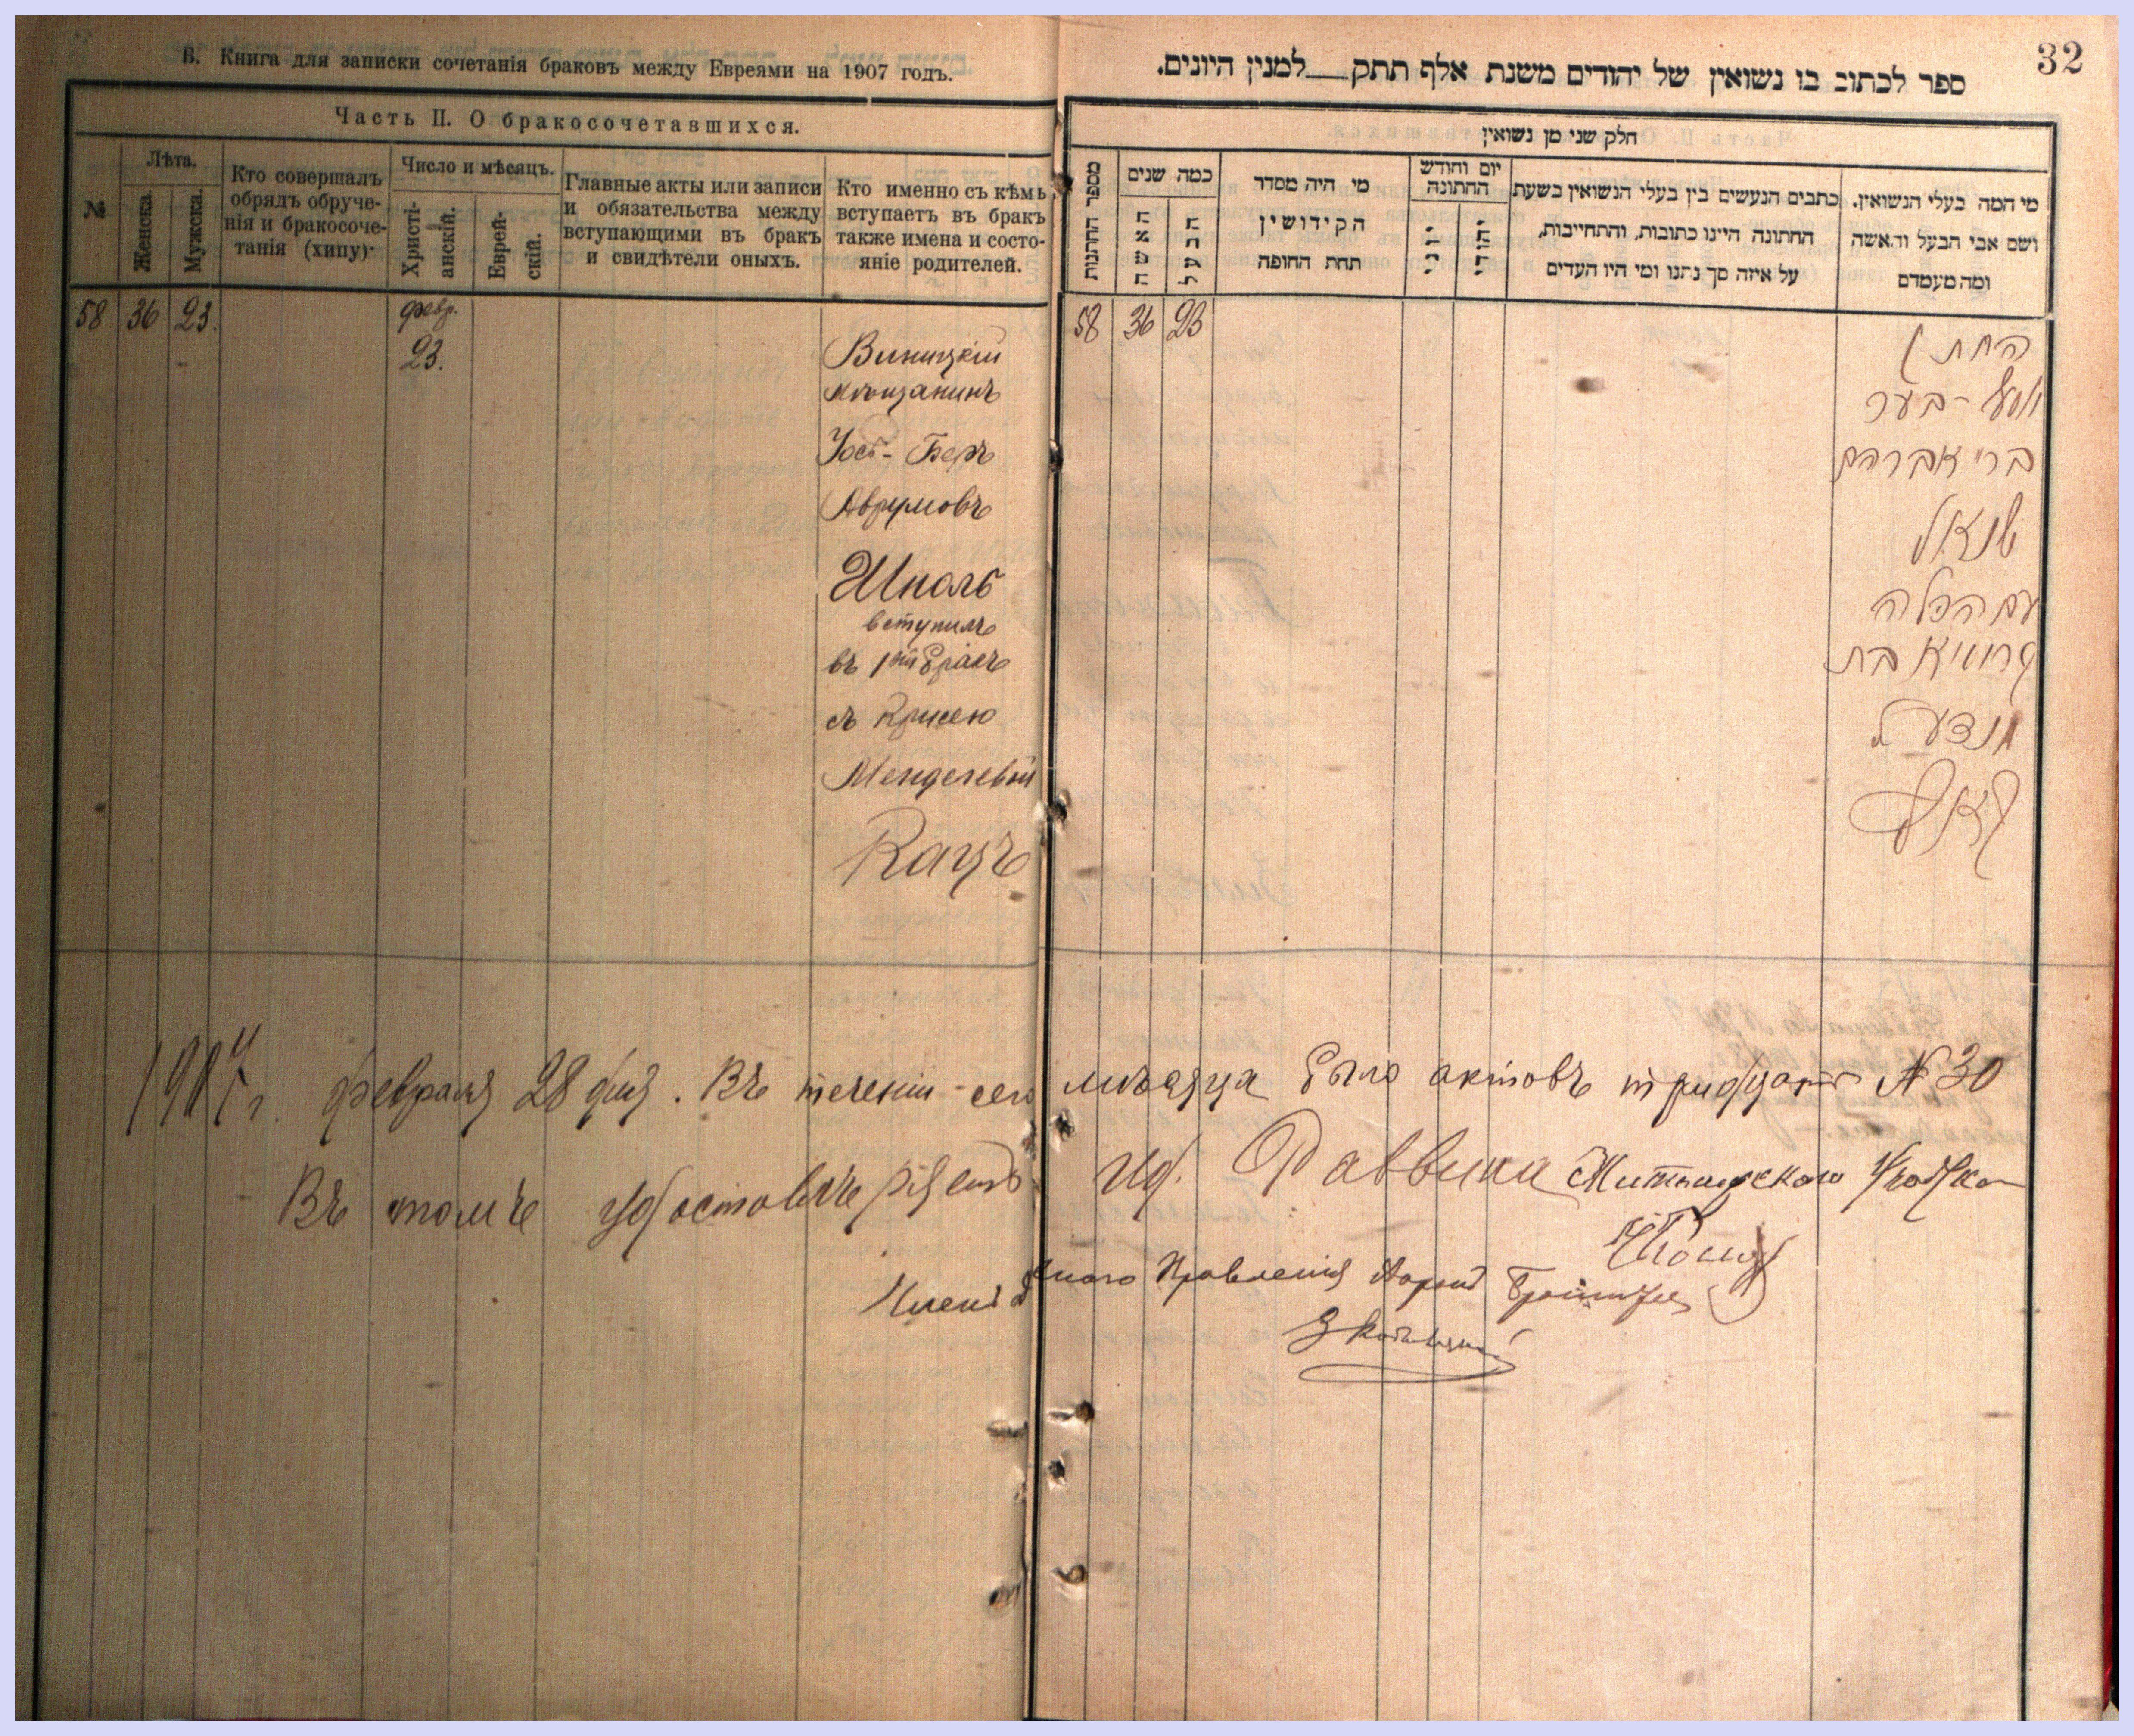 Б. Книга для записки сочетанія браковъ между Евреями на 1907 годъ.
Часть II. О бракосочетавшихся.
№
Лѣта.
Женска.
Мужска.
Кто совершалъ
обрядъ обруче-
нія и бракосоче-
танія (хипу).
Число и мѣсяцъ.
Христі-
анскій.
Еврей-
скій.
Главные акты или записи
и обязательства между
вступающими въ бракъ
и свидѣтели оныхъ.
Кто именно съ кѣмъ
вступаетъ въ бракъ
также имена и состо-
яніе родителей.
58 36 23. февр.
23.
Виницкій
мѣщанинъ
Іось-Беръ
Аврумовъ
Шполь
вступилъ
въ 1ый бракъ
съ Крисею
Менделевой
Кацъ
32
ספר לכתוב בו נשואין של יהודים משנת אלף תתק למנין היונים.
חלק שני מן נשואין
מספר החתנות
כמה שנים
האשה
הבעל
מי היה מסדר
הקידושין
תחת החופה
יום וחודש
החתונה
יוני
יהודי
כתבים הנעשים בין בעלי הנשואין בשעת
החתונה היינו כתובות, והתחייבות,
על איזה סך נתנו ומי היו העדים
מי המה בעלי הנשואין.
ושם אבי הבעל והאשה
ומה מעמדם
58 36 23
החתן
יאסל-בער
ברי אברהם
שפאל
עם הכלה
קרוסיא בת
מנדעל
קאץ
1907 г. февраля 28 дня. Въ теченіи сего мѣсяца было актовъ тридцать № 30
Въ томъ удостовѣряемъ Ид. Раввина
Членъ Правленія